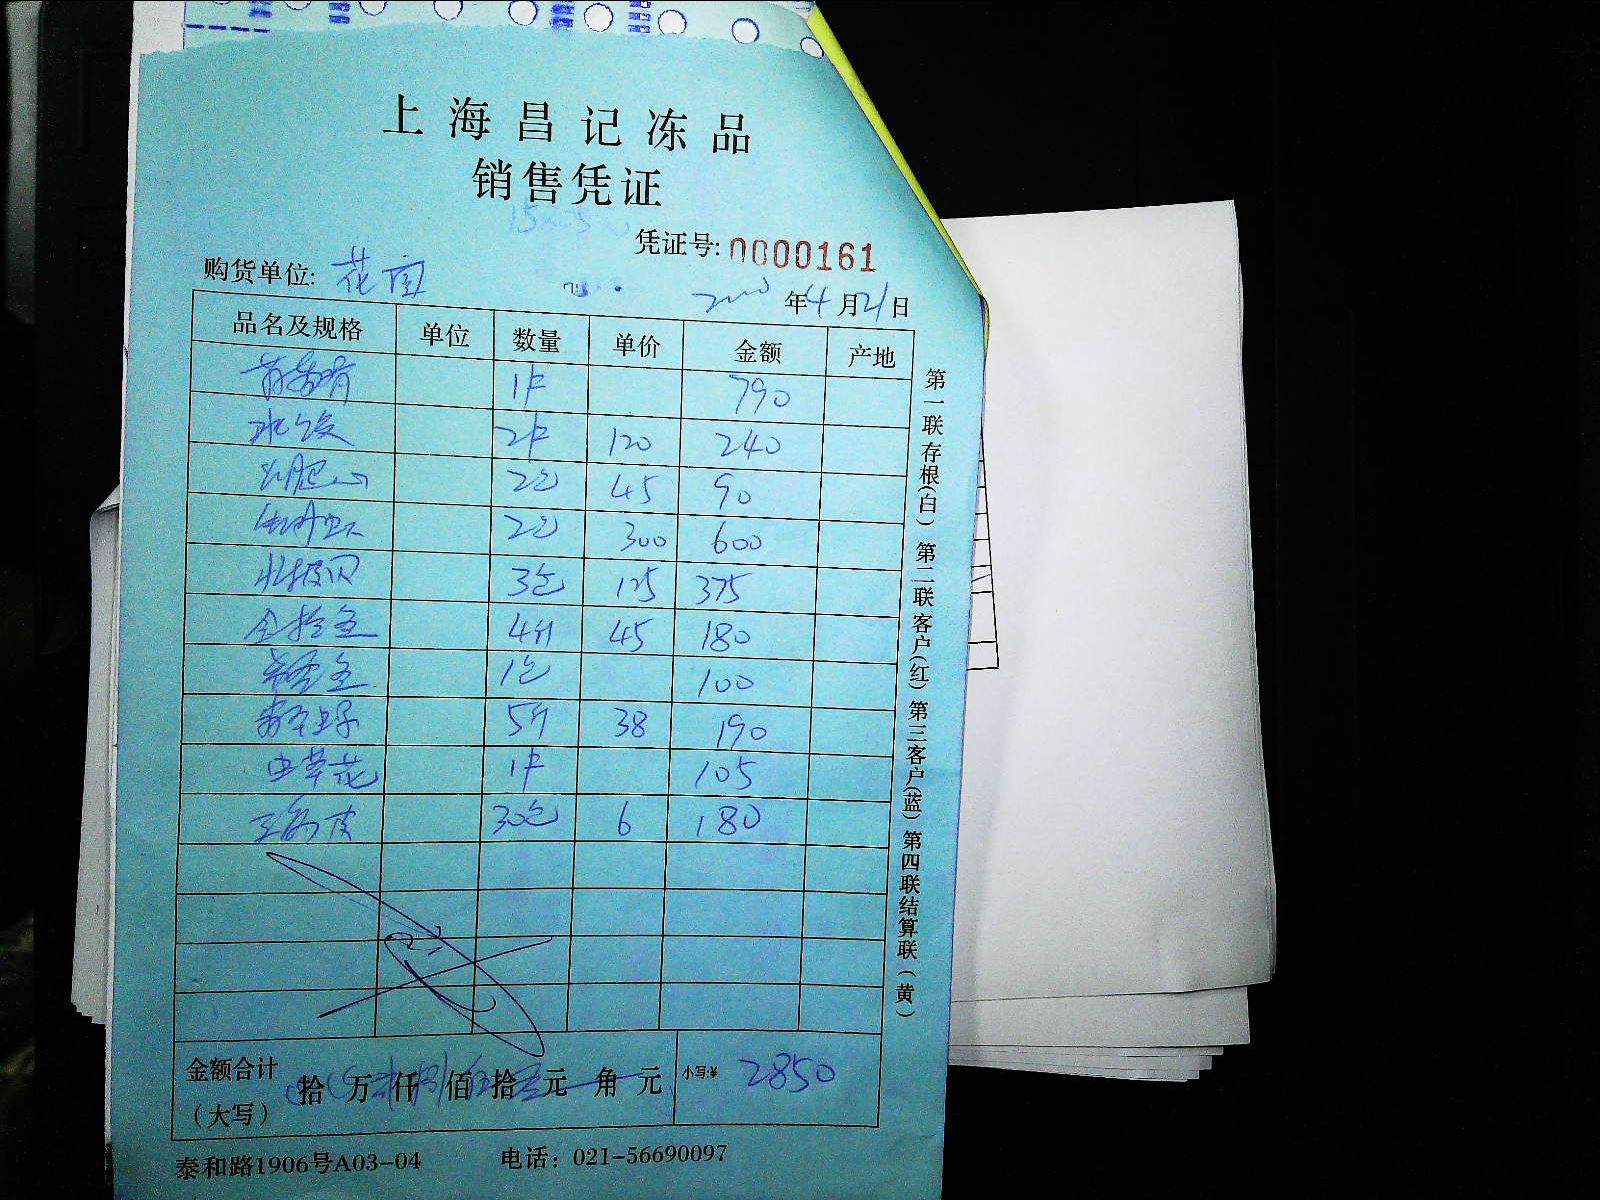 上海昌记冻品
销售凭证
凭证号: 0000161
购货单位: 花园
年4月21日
品名及规格 单位 数量 单价 金额 产地
1 790
水饺 2 120 240
2包 45 90
2包 300 600
3包 125 375
4斤 45 180
1包 100
5斤 38 190
虫草花 1 105
30包 6 180
金额合计（大写） 拾 万 仟 佰 拾 元 角 元 小写:¥ 2850
泰和路1906号A03-04 电话：021-56690097
第一联存根(白) 第二联客户(红) 第三客户(蓝) 第四联结算联(黄)